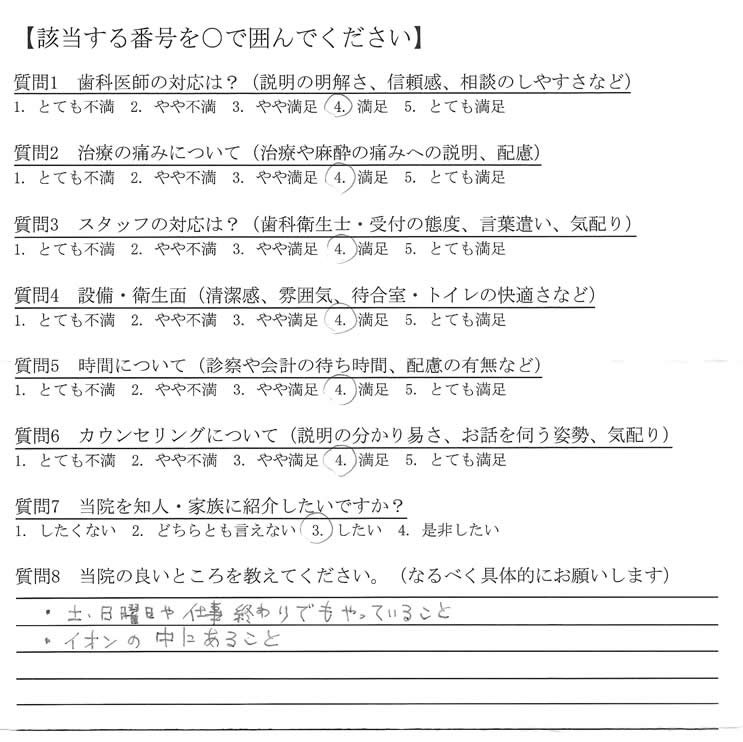 【該当する番号を〇で囲んでください】
質問1　歯科医師の対応は？（説明の明解さ、信頼感、相談のしやすさなど）
1. とても不満　2. やや不満　3. やや満足　4. 満足　5. とても満足
質問2　治療の痛みについて（治療や麻酔の痛みへの説明、配慮）
1. とても不満　2. やや不満　3. やや満足　4. 満足　5. とても満足
質問3　スタッフの対応は？（歯科衛生士・受付の態度、言葉遣い、気配り）
1. とても不満　2. やや不満　3. やや満足　4. 満足　5. とても満足
質問4　設備・衛生面（清潔感、雰囲気、待合室・トイレの快適さなど）
1. とても不満　2. やや不満　3. やや満足　4. 満足　5. とても満足
質問5　時間について（診察や会計の待ち時間、配慮の有無など）
1. とても不満　2. やや不満　3. やや満足　4. 満足　5. とても満足
質問6　カウンセリングについて（説明の分かり易さ、お話を伺う姿勢、気配り）
1. とても不満　2. やや不満　3. やや満足　4. 満足　5. とても満足
質問7　当院を知人・家族に紹介したいですか？
1. したくない　2. どちらとも言えない　3. したい　4. 是非したい
質問8　当院の良いところを教えてください。（なるべく具体的にお願いします）
・土、日曜日や仕事終わりでもやっていること
・イオンの中にあること